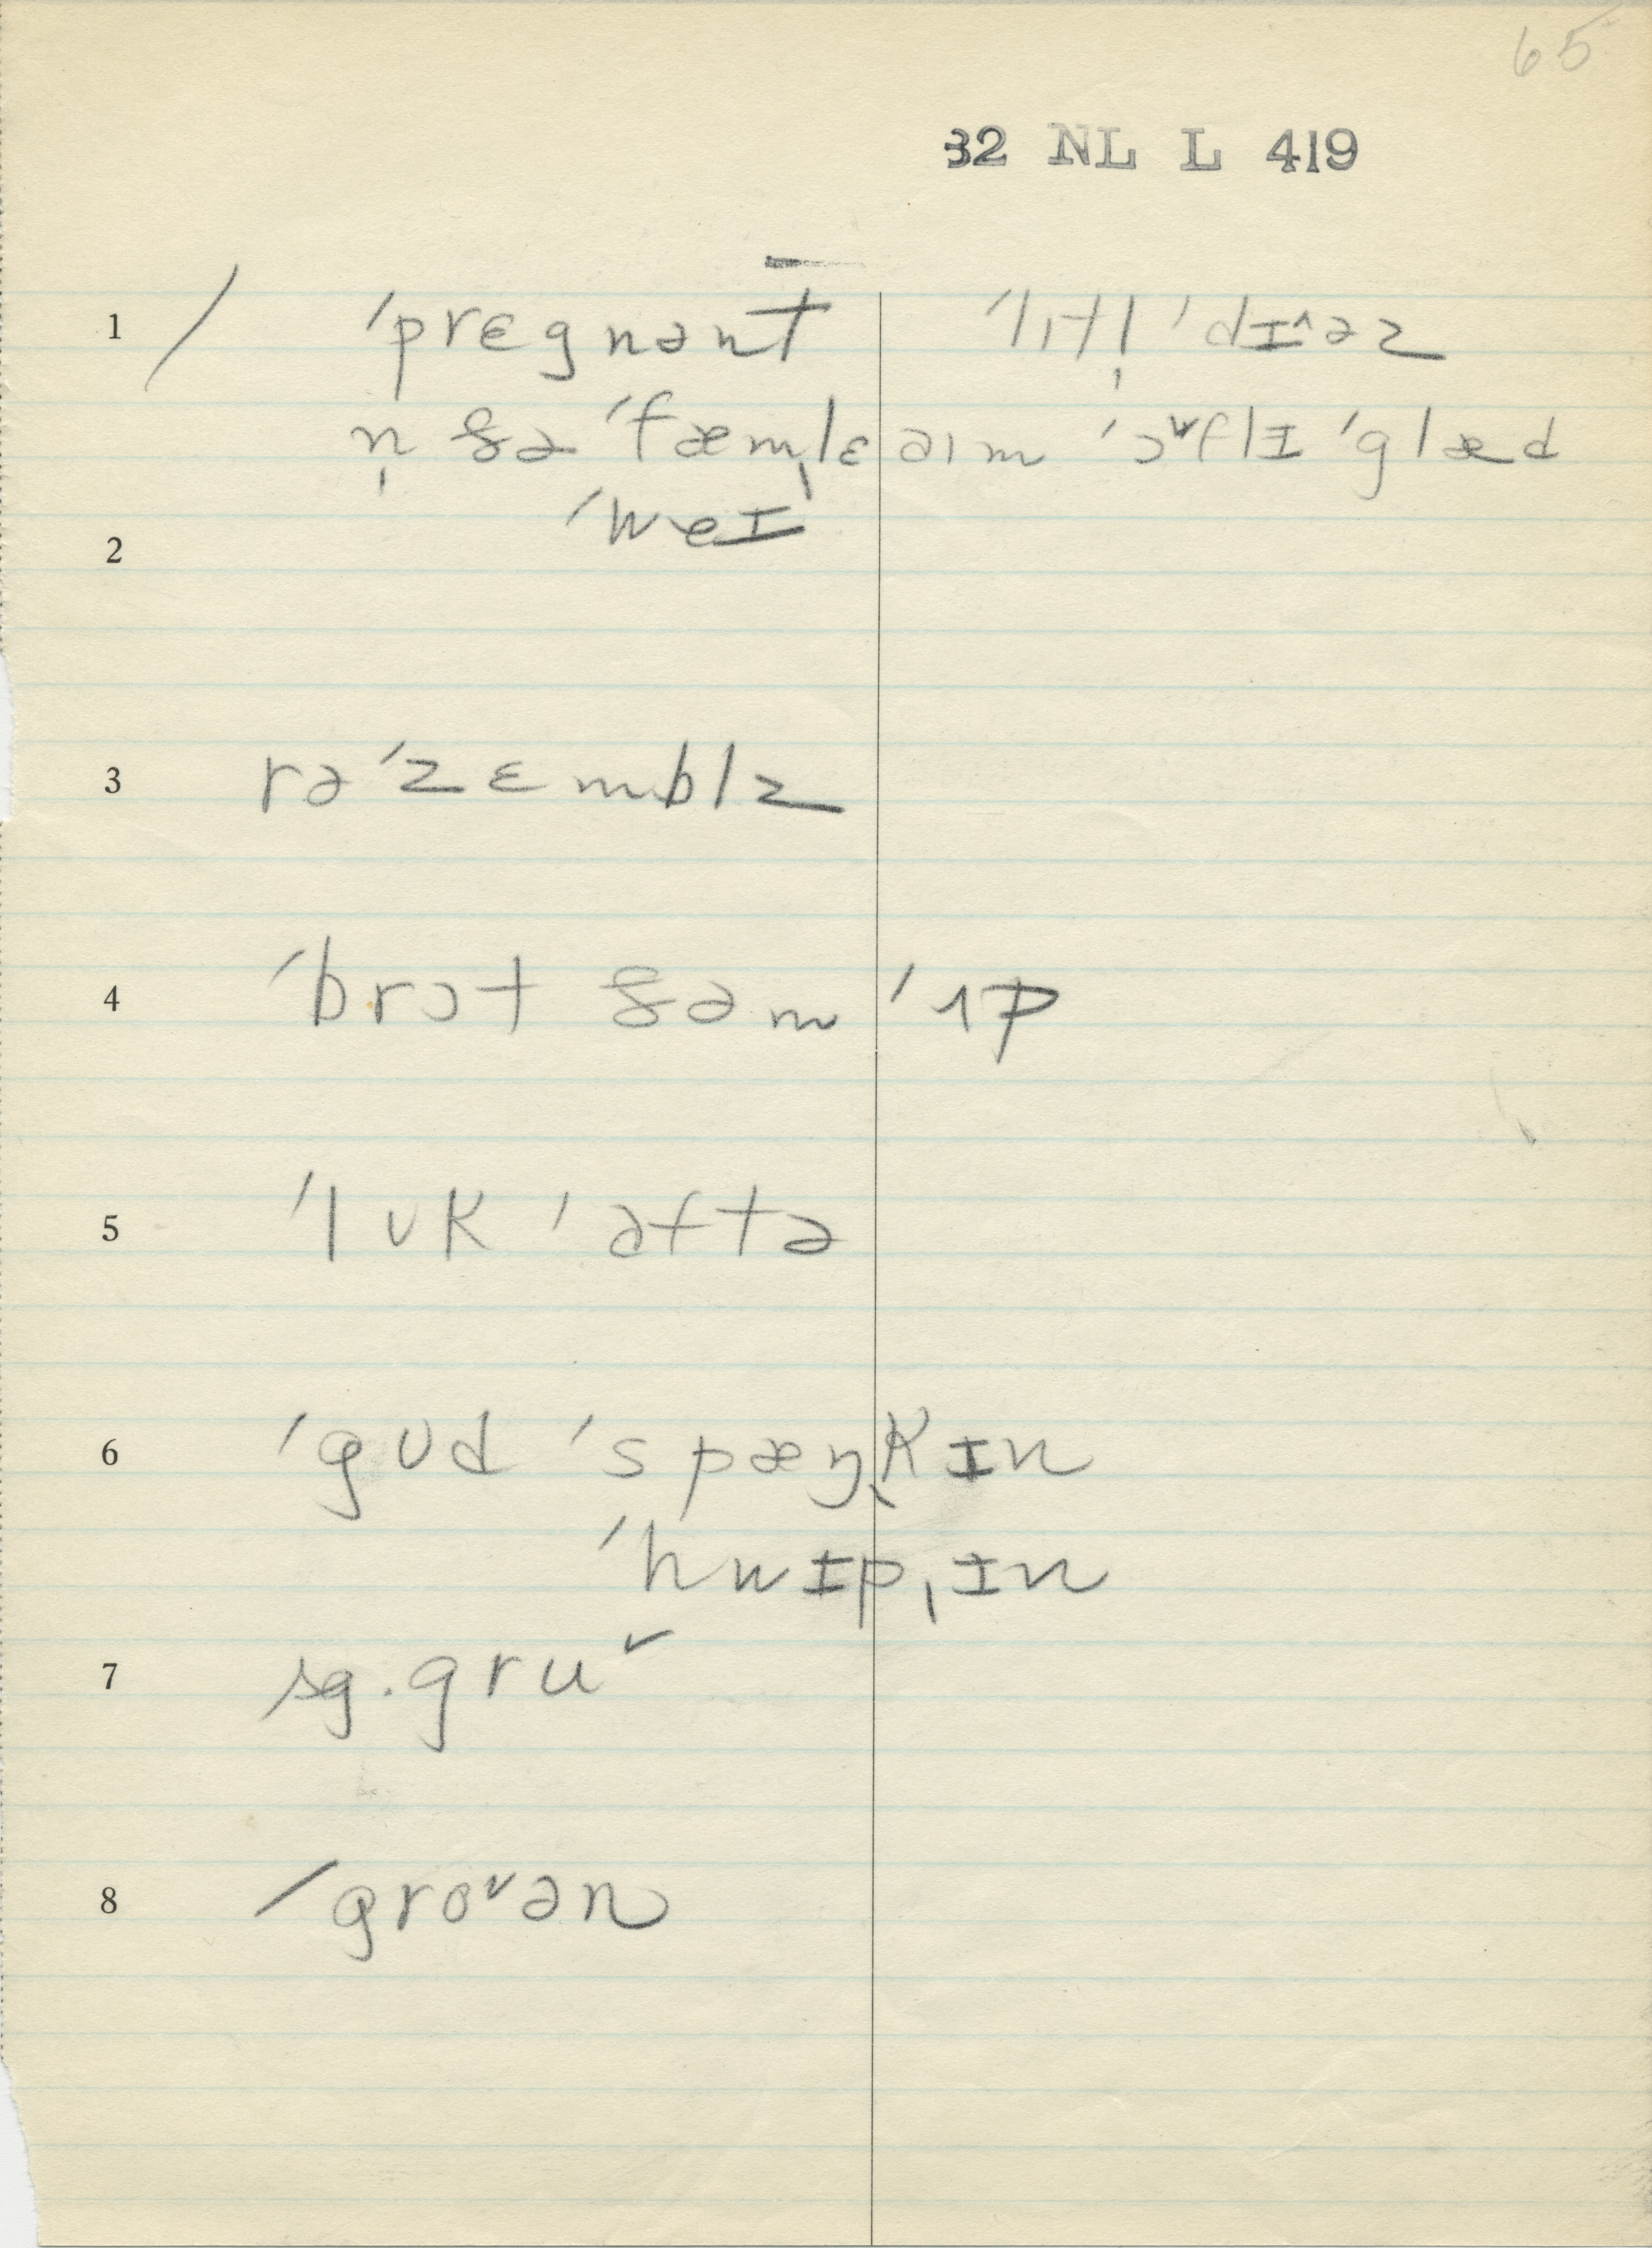 65
32 NL L 419
1 / ˈprɛgnənt ˈlɪtl̩ ˈdɪ^əz
n̩ ðə ˈfæmˌlɛ aɪm ˈɔᵛflɪ ˈglæd
ˈweɪ
2
3 rəˈzɛmblz
4 ˈbrɔt ðəm ˈʌp
5 ˈlʊk ˈaftə
6 ˈgʊd ˈspæŋˌkɪn
ˈhwɪpˌɪn
7 sg. gruᵛ
8 /groᵛən